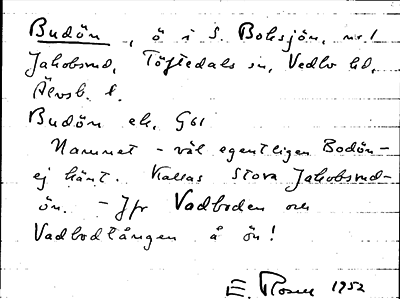 Budön, ö i S. Boksjön, nr 1
Jakobsrud, Töftedals sn, Vedbo hd,
Älvsb. l.
Budön ek. G61
Namnet - väl egentligen Bodön -
ej känt. Kallas Stora Jakobsrud-
ön. - Jfr Vadboden och
Vadbodtången å ön!
E. Rosell 1952